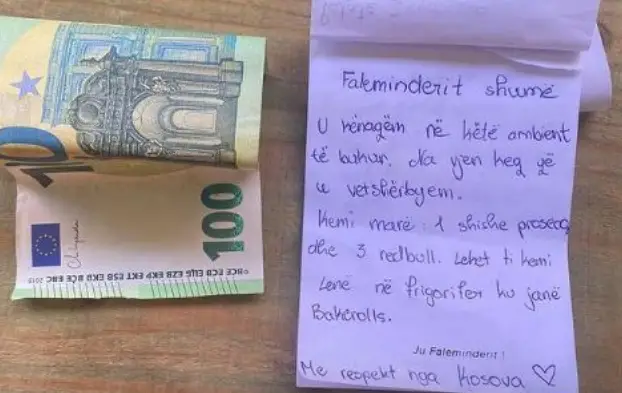 100
100
BCE ECB ЕЦБ EZB EKP EKT ESB EKB BĊE EBC 2019
Faleminderit shumë
U kënaqëm në këtë ambient
të bukur. Na vjen keq që
u vetshërbyem.
Kemi marë 1 shishe prosecco
dhe 3 redbull. Lekët ti kemi
lënë në frigorifer ku janë
Bakërolls.
Ju Faleminderit !
Me respekt nga Kosova ♡